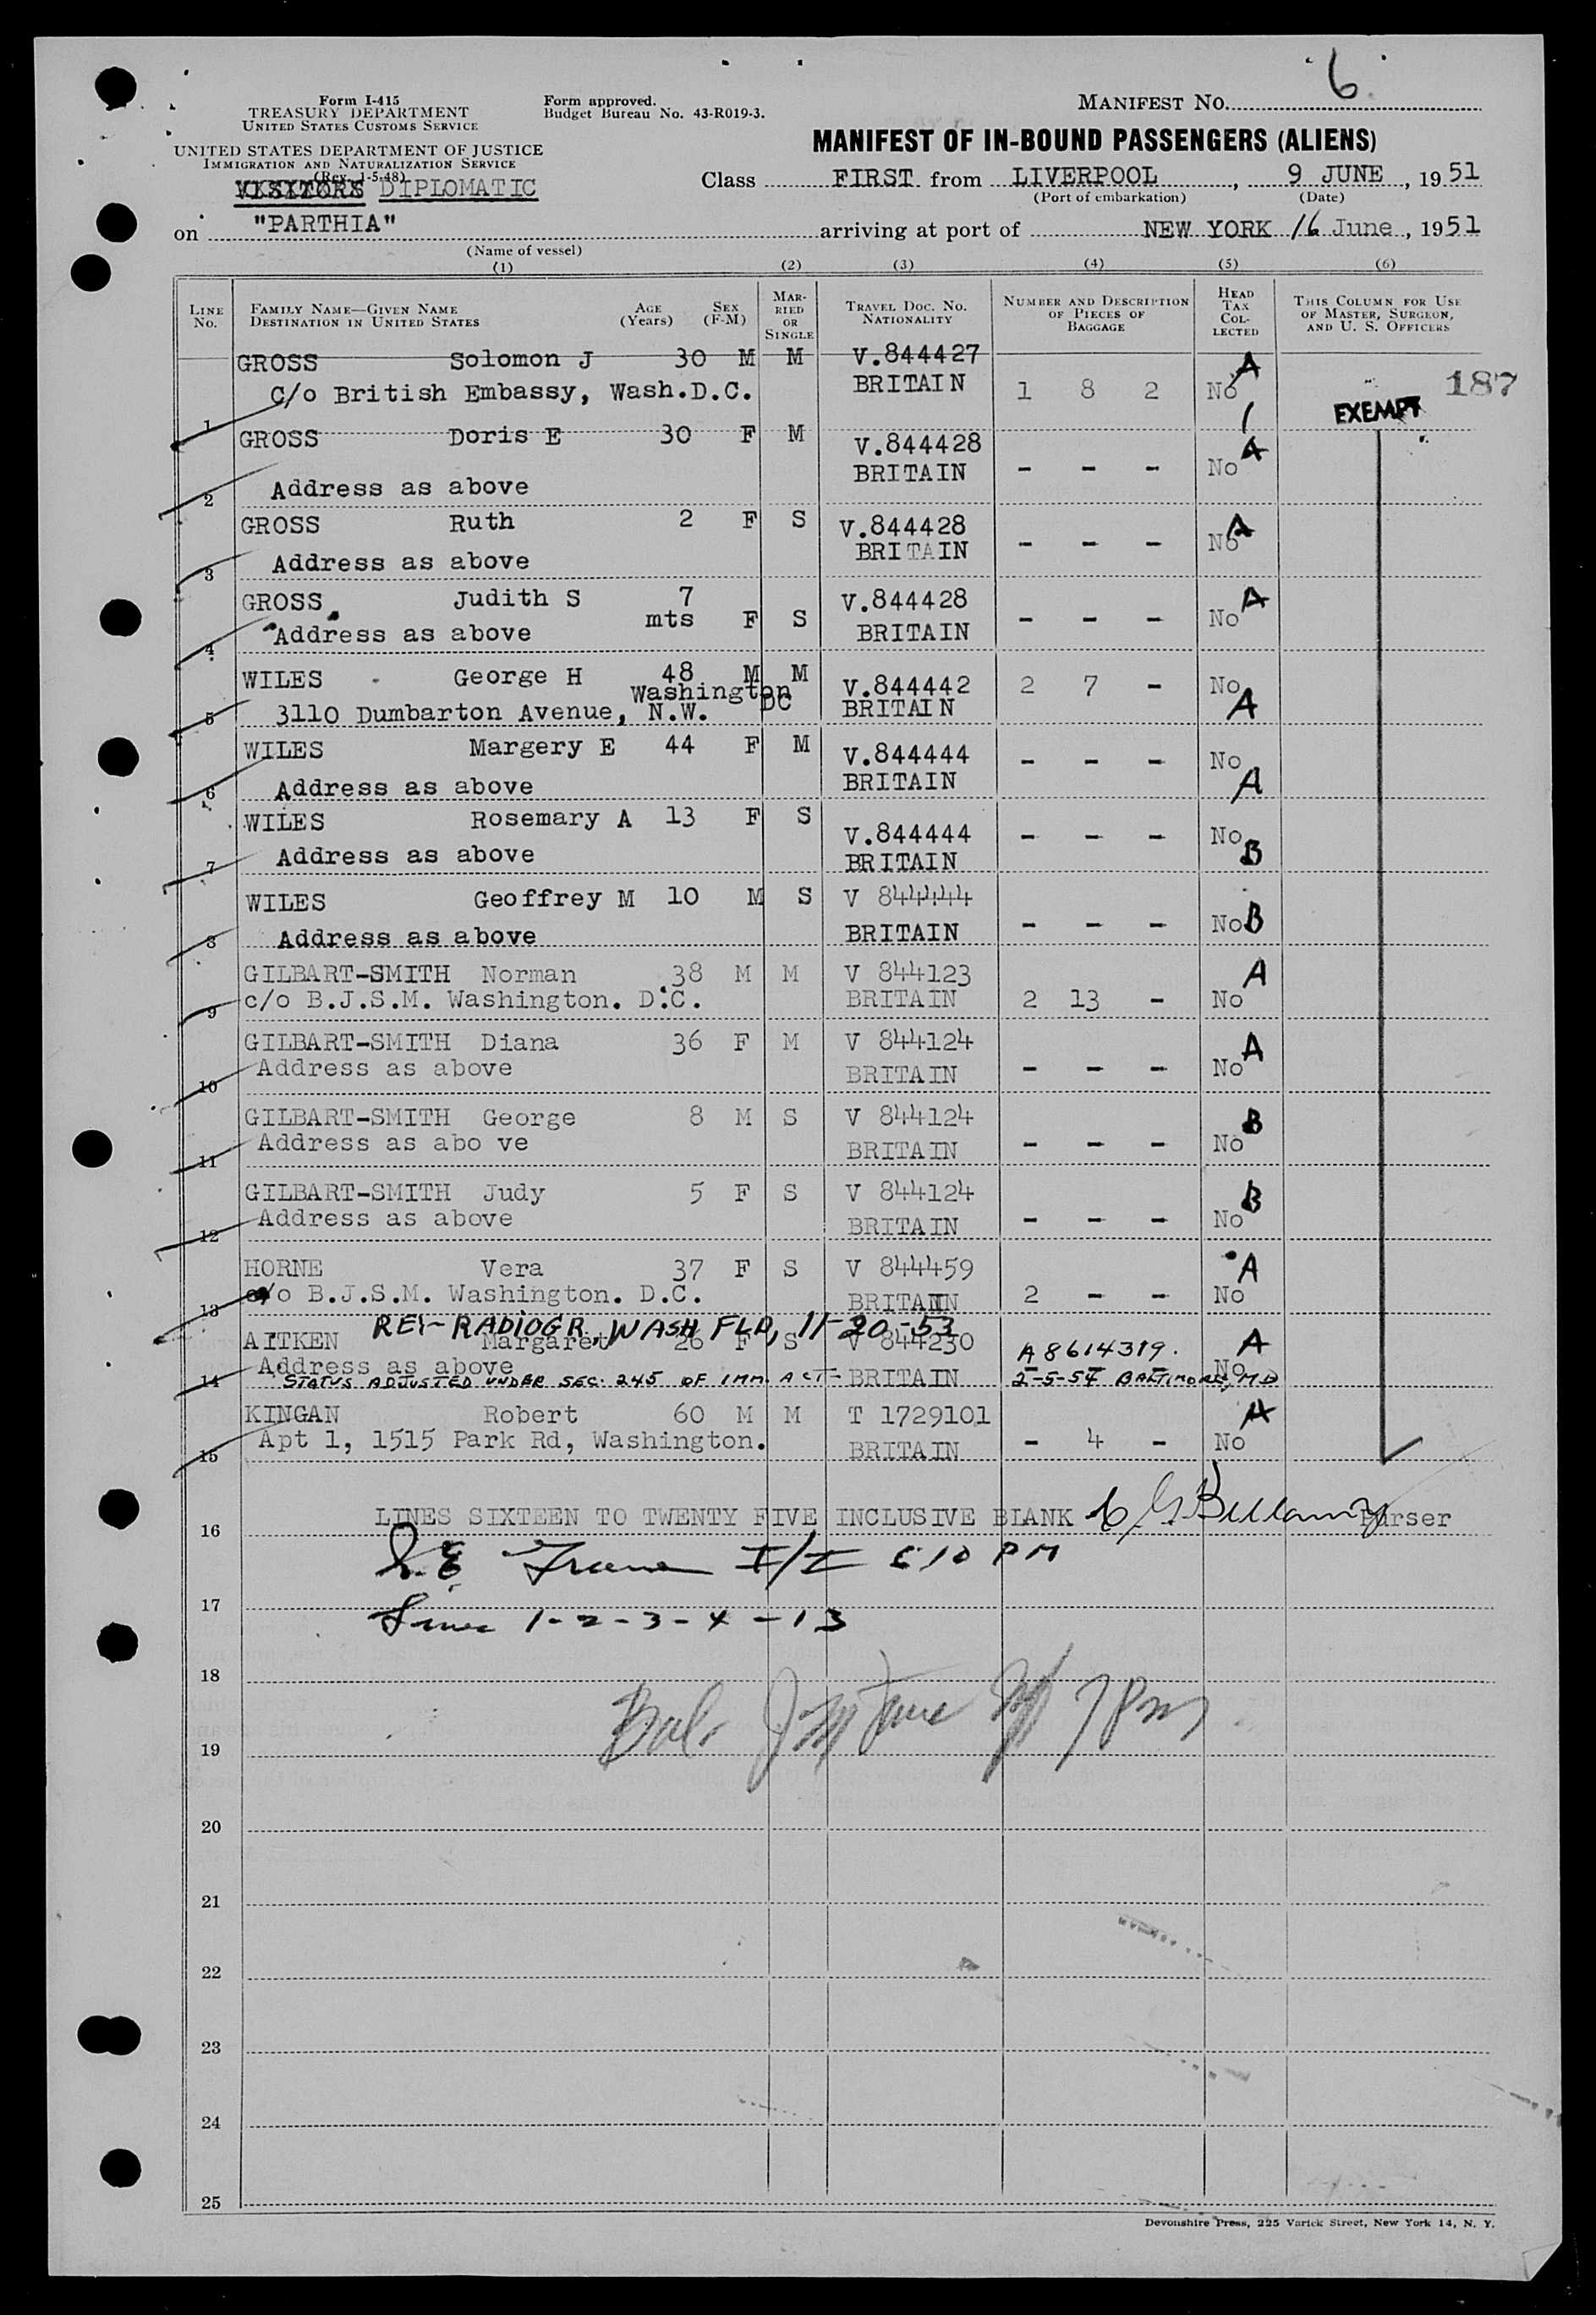 6
Form I-415
TREASURY DEPARTMENT
UNITED STATES CUSTOMS SERVICE
Form approved.
Budget Bureau No. 43-R019-3.
MANIFEST NO.
UNITED STATES DEPARTMENT OF JUSTICE
IMMIGRATION AND NATURALIZATION SERVICE
(Rev. 1-5-48)
MANIFEST OF IN-BOUND PASSENGERS (ALIENS)
VISITORS DIPLOMATIC
Class FIRST from LIVERPOOL, 9 JUNE, 1951
(Port of embarkation) (Date)
on "PARTHIA" arriving at port of NEW YORK 16 June, 1951
(Name of vessel)
(1) (2) (3) (4) (5) (6)
LINE No. FAMILY NAME—GIVEN NAME DESTINATION IN UNITED STATES AGE (Years) SEX (F-M) MARRIED OR SINGLE TRAVEL DOC. NO. NATIONALITY NUMBER AND DESCRIPTION OF PIECES OF BAGGAGE HEAD TAX COLLECTED THIS COLUMN FOR USE OF MASTER, SURGEON, AND U. S. OFFICERS
GROSS Solomon J 30 M M V.844427 A
1 C/o British Embassy, Wash.D.C. BRITAIN 1 8 2 No EXEMPT 187
GROSS Doris E 30 F M V.844428 A
2 Address as above BRITAIN - - - No
GROSS Ruth 2 F S V.844428 A
3 Address as above BRITAIN - - - No
GROSS Judith S 7 mts F S V.844428 A
4 Address as above BRITAIN - - - No
WILES George H 48 M M V.844442 2 7 - No
5 3110 Dumbarton Avenue, N.W. Washington DC BRITAIN A
WILES Margery E 44 F M V.844444 - - - No
6 Address as above BRITAIN A
WILES Rosemary A 13 F S V.844444 - - - No
7 Address as above BRITAIN B
WILES Geoffrey M 10 M S V 844444
8 Address as above BRITAIN - - - No B
GILBART-SMITH Norman 38 M M V 844123 A
9 c/o B.J.S.M. Washington. D.C. BRITAIN 2 13 - No
GILBART-SMITH Diana 36 F M V 844124 A
10 Address as above BRITAIN - - - No
GILBART-SMITH George 8 M S V 844124 B
11 Address as abo ve BRITAIN - - - No
GILBART-SMITH Judy 5 F S V 844124 B
12 Address as above BRITAIN - - - No
HORNE Vera 37 F S V 844459 A
13 c/o B.J.S.M. Washington. D.C. BRITAIN 2 - - No
RADIOGR, WASH FLD, 11-20-53
AITKEN Margaret 26 F S V 844230 A8614319. A
14 Address as above BRITAIN - - - No
STATUS ADJUSTED UNDER SEC. 245 OF IMM. ACT- 2-5-54 BALTIMORE, MD
KINGAN Robert 60 M M T 1729101 A
15 Apt 1, 1515 Park Rd, Washington. BRITAIN - 4 - No
16 LINES SIXTEEN TO TWENTY FIVE INCLUSIVE BLANK Purser
I/I 510 PM
17
Lines 1-2-3-4-13
18
Bal. 7 Pm
19
20
21
22
23
24
25
Devonshire Press, 225 Varick Street, New York 14, N. Y.